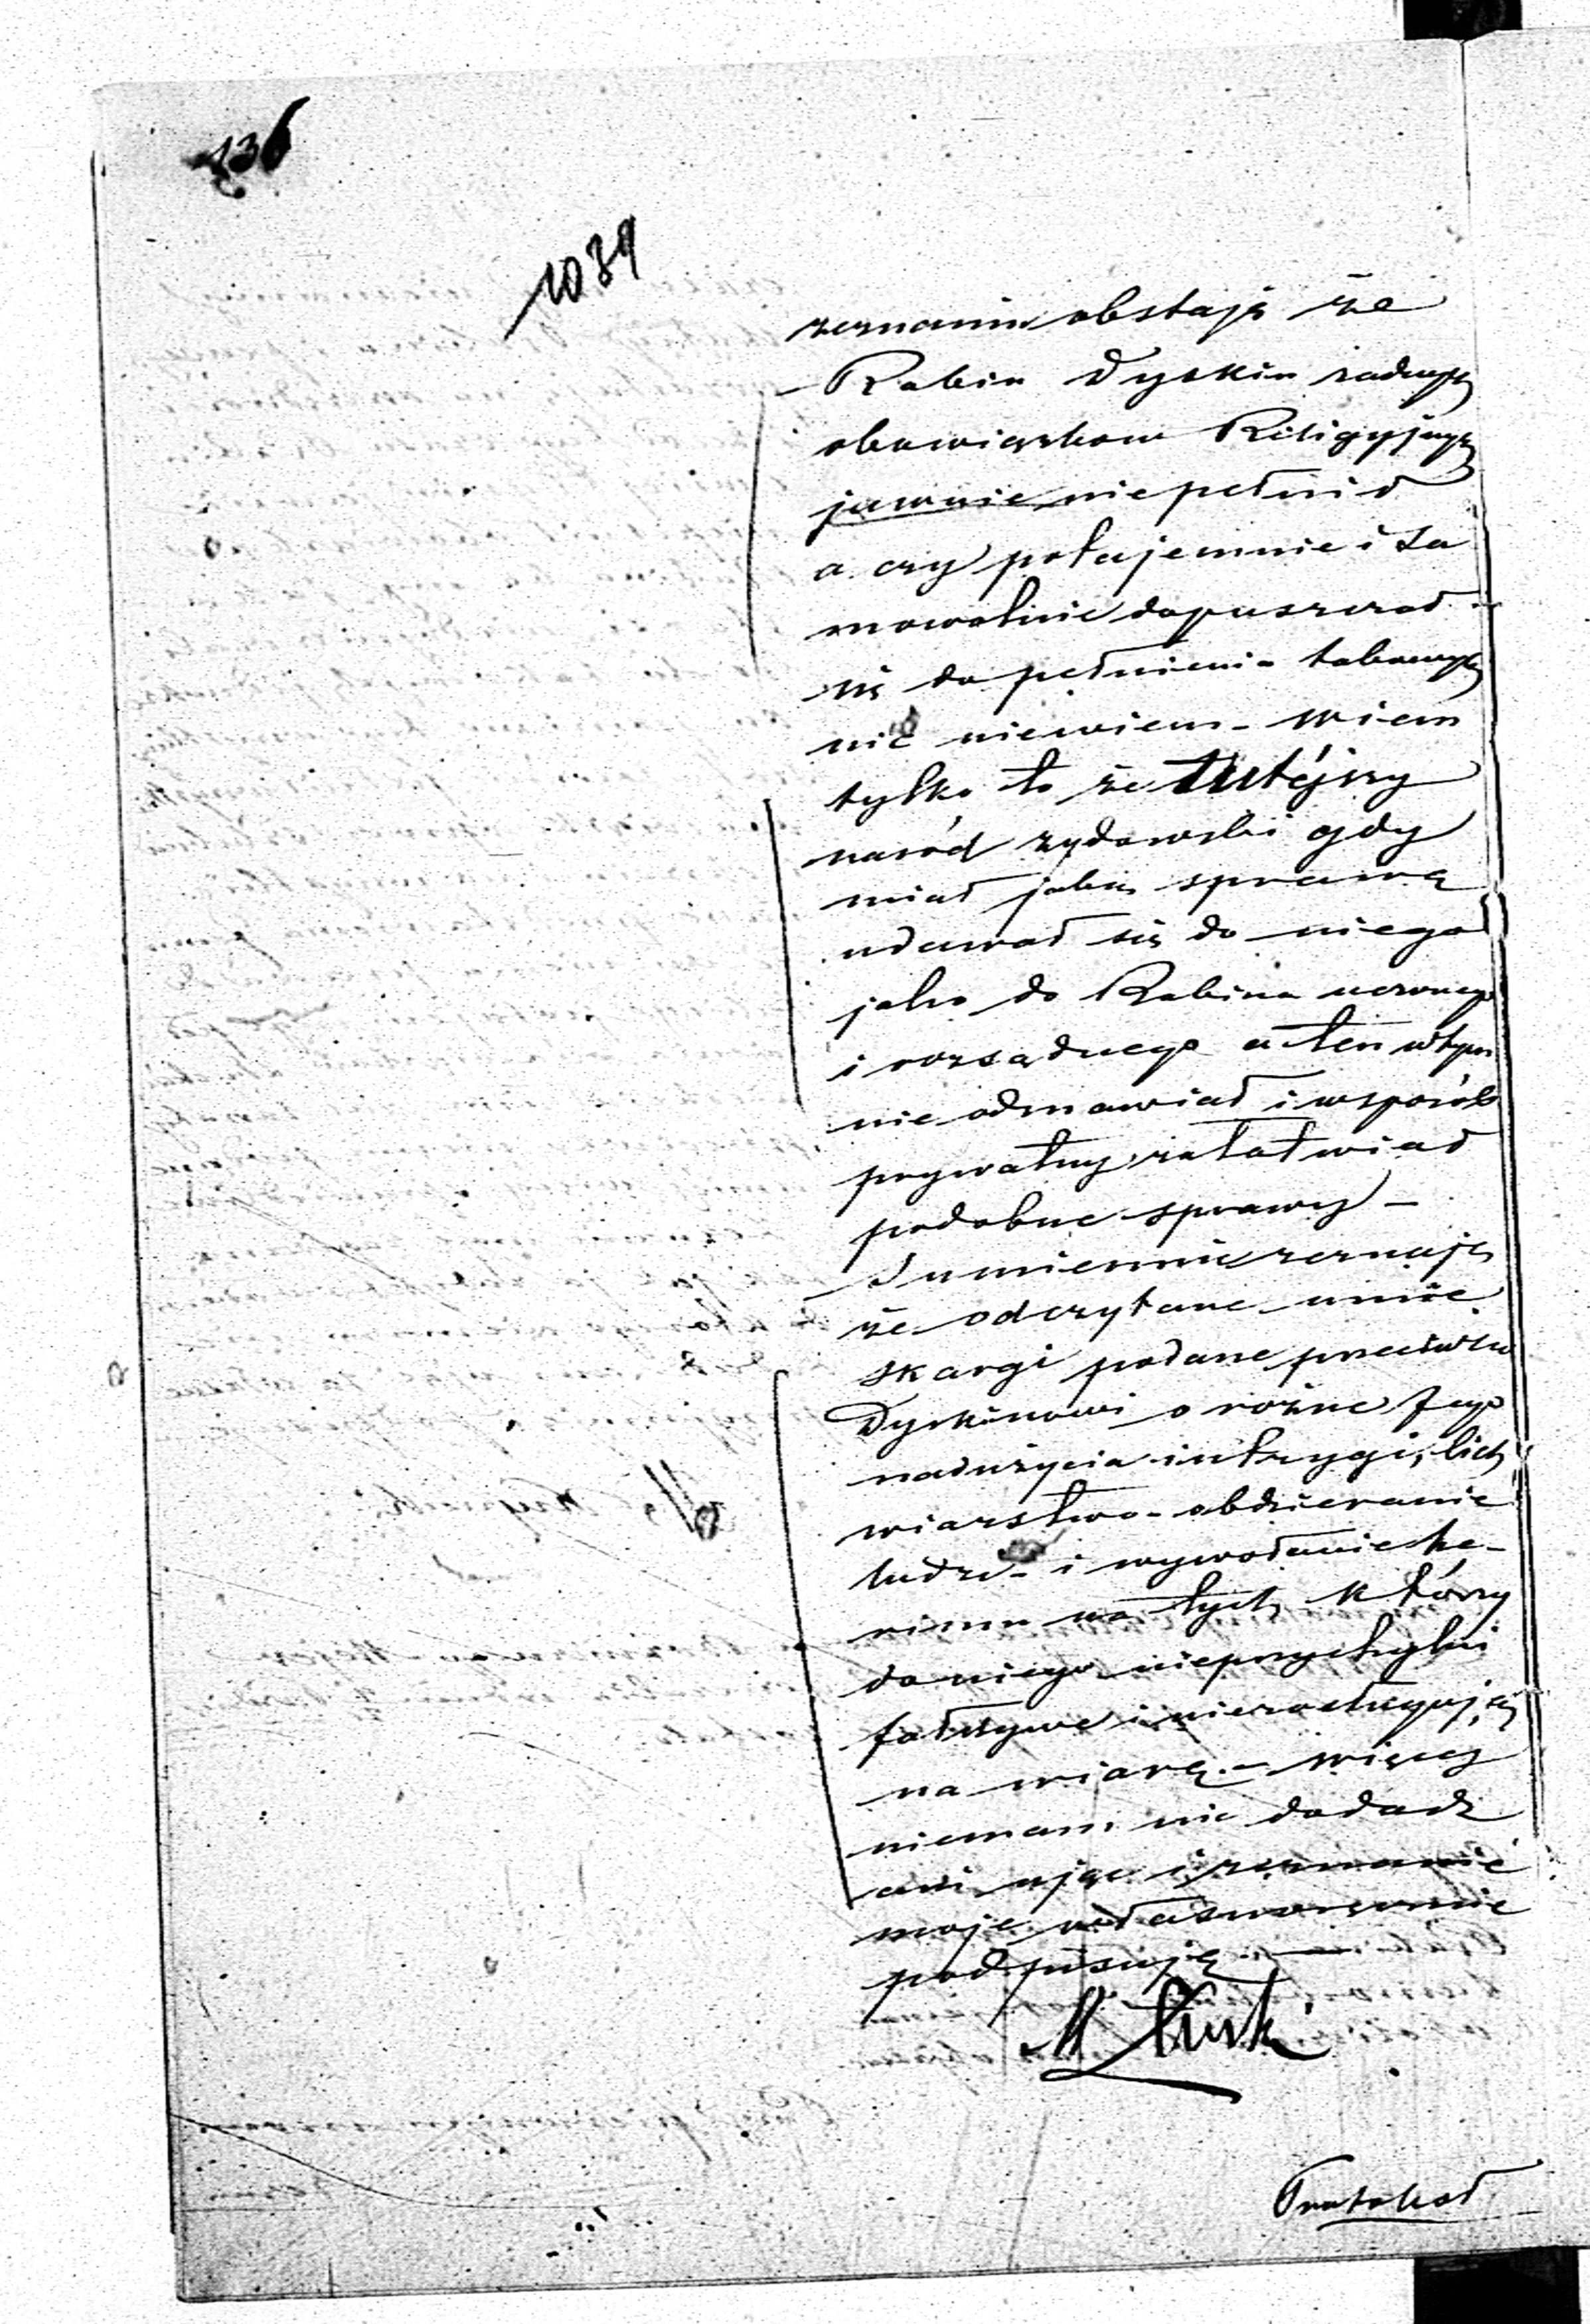 136
1039
zeznaniu obstaję że
Rabin Dyskin żadnych
obowiązkow Religyjnych
jawnie niepełnił
a czy potajemnie i sa
mowolnie dopuszczał
się do pełnienia takowych
nic niewiem - wiem
tylko to że tutéjszy
naród żydowski gdy
miał jaką sprawę
udawał się do niego
jako do Rabina uczonego
i rozsądnego a ten wtym
nie odmawiał i wsposób
prywatny załatwiał
podobne sprawy -
Sumiennie zeznaję
że odczytane mnie
skargi podane przeciwko
Dyskinowi o rożne Jego
nadużycia intrygi, lich
wiarstwo - obdzieranie
ludzi - i wywołanie he-
rimu na tych którzy
do niego nieprzychylni
fałszywe i niezasługują
na wiarę. - więcej
niemam nic dodadz
ani ująć i zeznanie
moje własnoręcznie
podpisuję
M
Protokoł